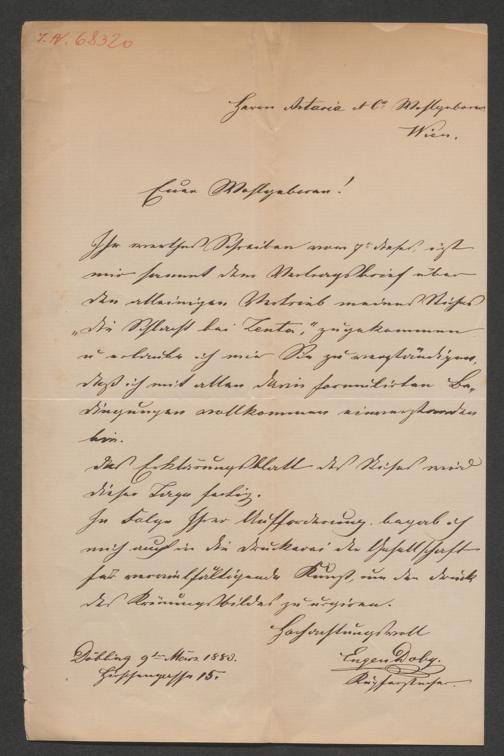 I. N. 68320
Herrn Artaria & Co Wohlgeboren
Wien.
Euer Wohlgeboren!
Ihr werthes Schreiben vom 7t dieses, ist
mir sammt dem Vertragsbrief über
den alleinigen Vertrieb meines Stiches
„die Schlacht bei Zenta," zugekommen
u erlaube ich mir Sie zu verständigen,
daß ich mit allen darin formulirten Be-
dingungen vollkommen einverstanden
bin.
das Erklärungsblatt des Stiches wird
dieser Tage fertig.
In Folge Ihrer Aufforderung, begab ich
mich auch in die Druckerei der Gesellschaft
für vervielfältigende Kunst, um den Druck
des Krönungsbildes zu urgiren.
Hochachtungsvoll
Eugen Doby.
Kupferstecher.
Döbling 9ten März 1883.
Hirschengasse 15.